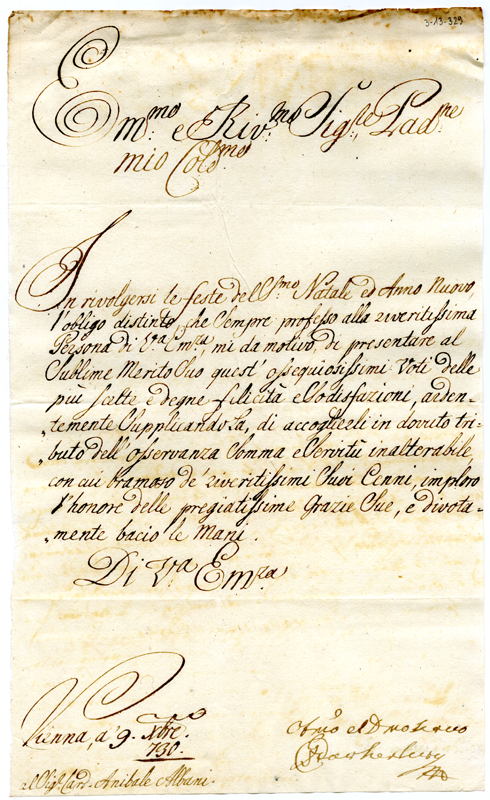 3-13-329
Em.mo e Riv.mo Sig.re Pad.ne
mio Col.mo
In rivolgersi le feste del S.mo Natale ed Anno Nuovo,
l'obligo distinto, che sempre professo alla riveritissima
Persona di V.ra Em.za, mi da motivo, di presentare al
Sublime Merito Suo quest' ossequiosissimi Voti delle
più scelte e degne felicità e Sodisfazioni, arden-
temente Supplicandola, di accoglierli in dovuto tri-
buto dell'osservanza Somma e Servitù inalterabile,
con cui bramoso de' riveritissimi Suoi Cenni, imploro
l'honore delle pregiatissime Grazie Sue, e divota-
mente bacio le Mani.
Di V.ra Em.za
Vienna, a' 9. Xbre
730.
al Sig.r Card. Anibale Albani.